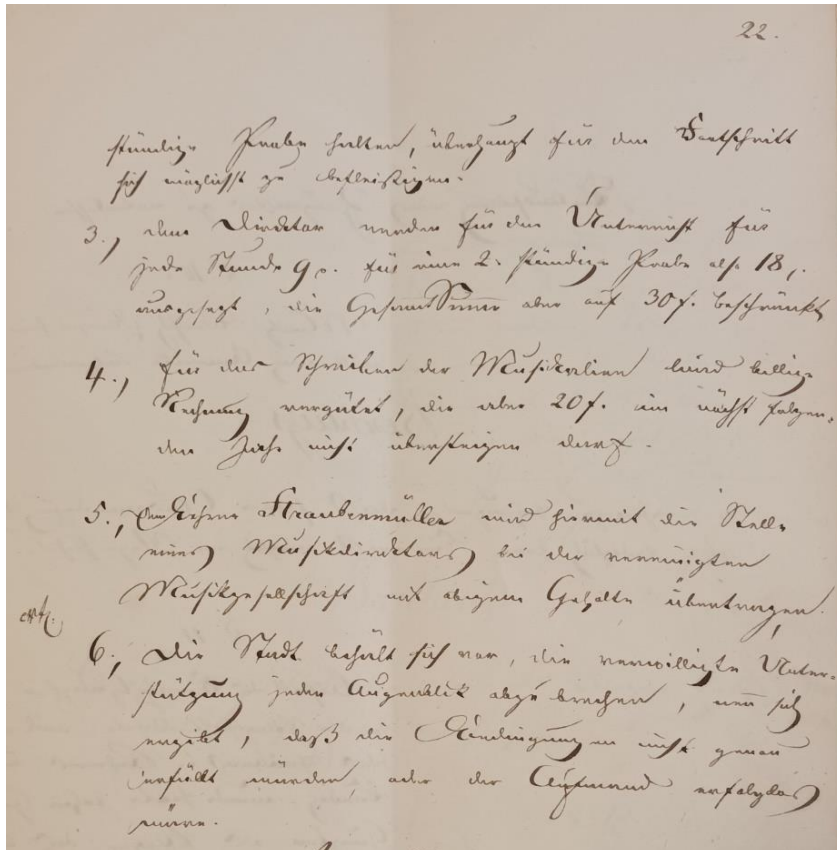 22.
stündige Probe halten, überhaupt für den Fortschritt
sich möglichst zu befleißigen.
3., dem Direktor werden für den Unterricht für
jede Stunde 9 x. für eine 2. stündige Probe also 18 x.
ausgesezt, die Gesamt Summe aber auf 30 f. beschränkt
4., für das Schreiben der Musikalien wird billige
Rechnung vergütet, die aber 20 f. im nächst folgen-
den Jahr nicht übersteigen darf.
5., Dem Lehrer Straubenmüller wird hiermit die Stelle
eines Musikdirektors bei der vereinigten
Musikgesellschaft mit obigem Gehalte übertragen.
6., Die Stadt behält sich vor, die verwilligte Unter-
stützung jeden Augenblik abzubrechen, wenn sich
ergibt, daß die Bedingungen nicht genau
erfüllt würden, oder der Aufwand erfolglos
wäre.